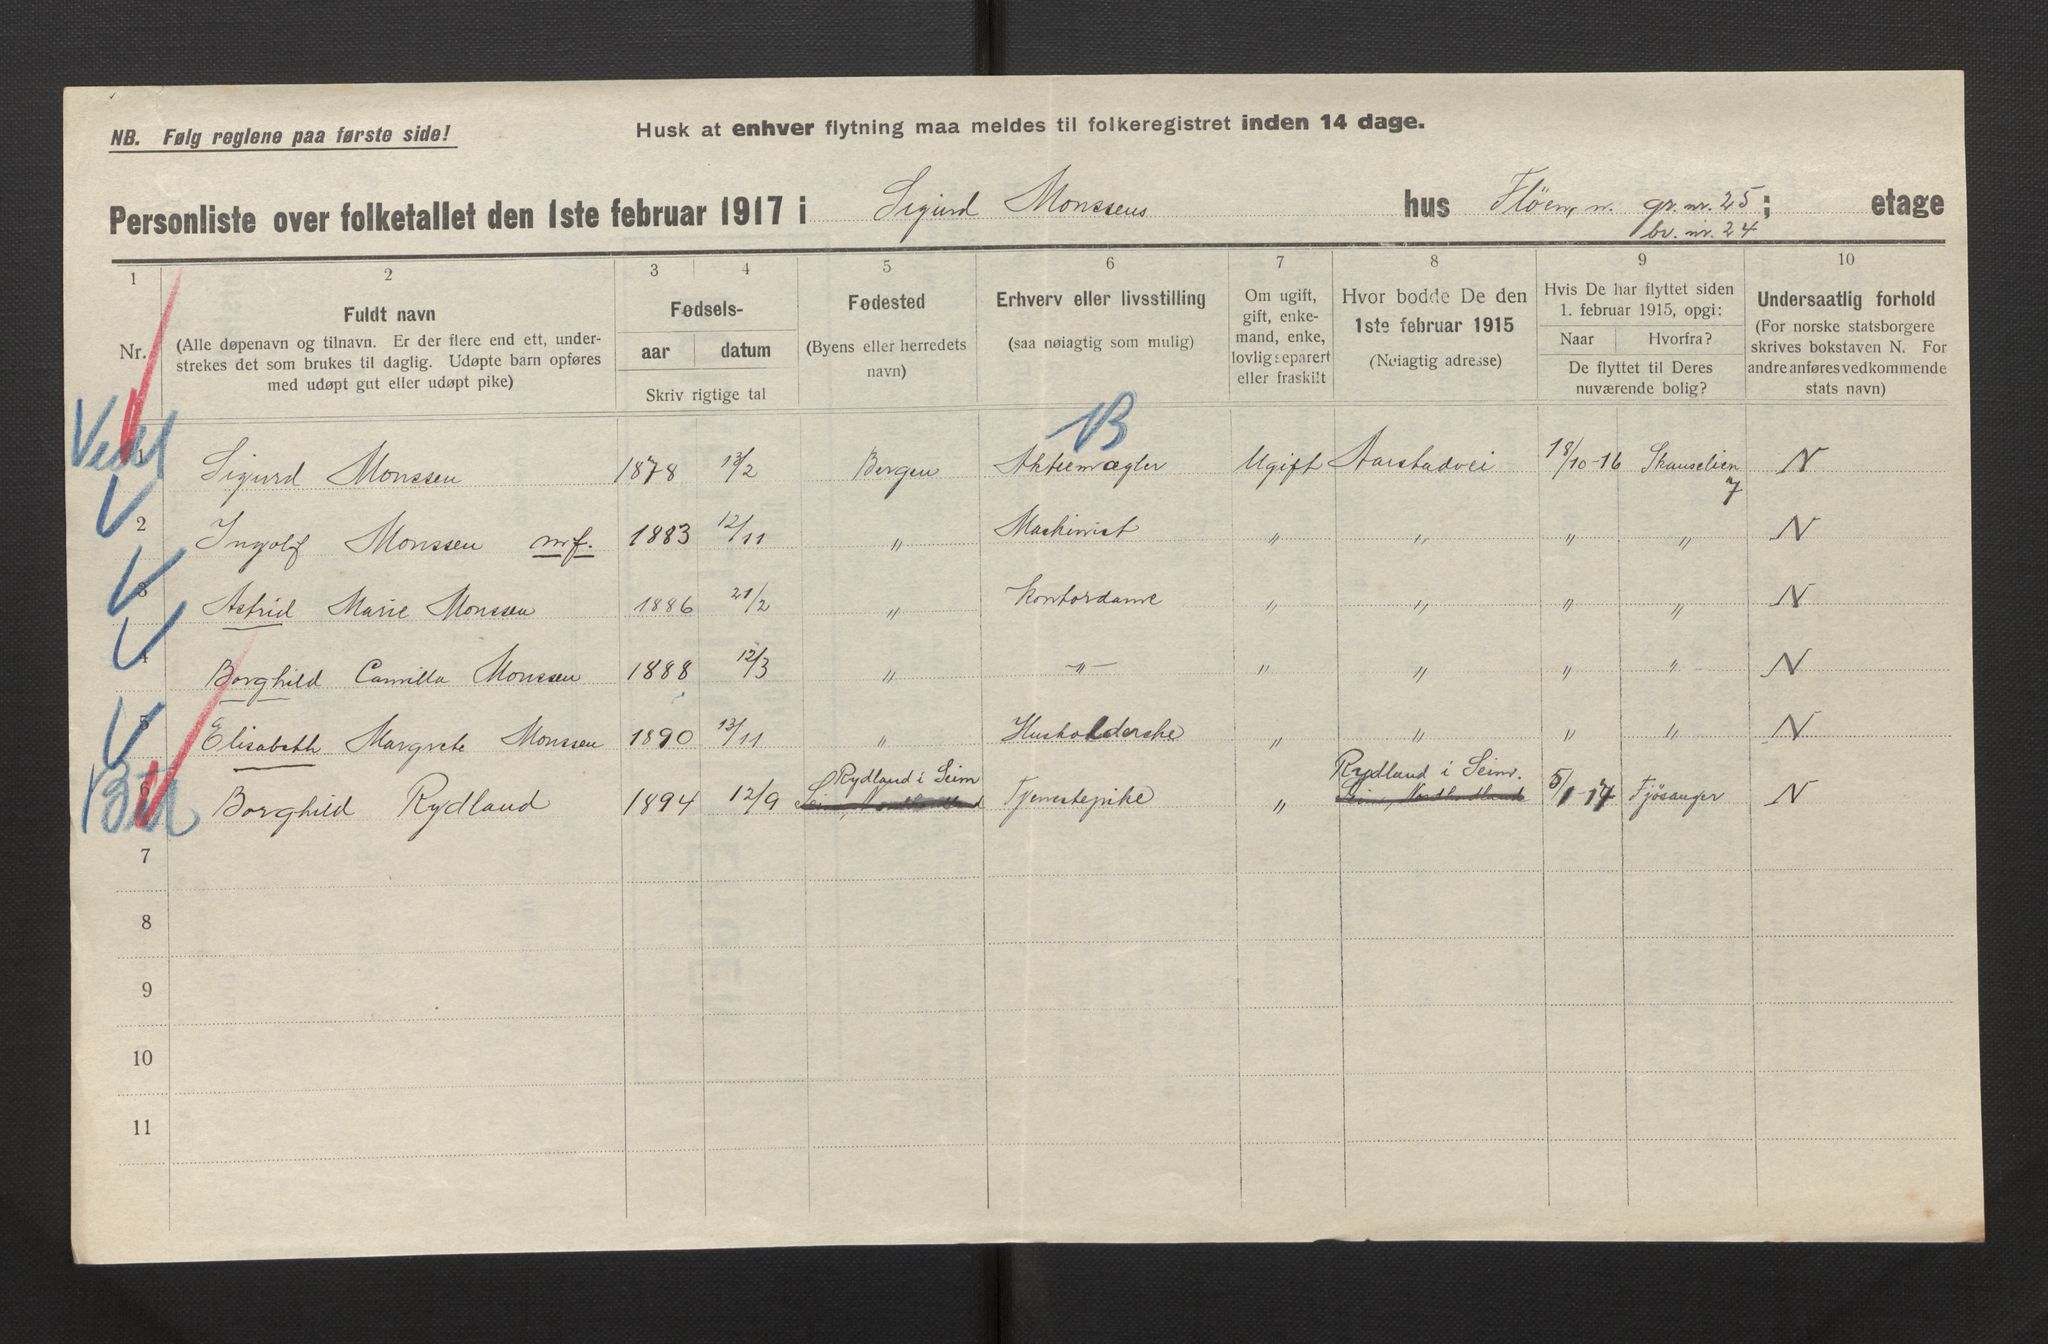 NB. Følg reglene paa første side!
Husk at enhver flytning maa meldes til folkeregistret inden 14 dage.
Personliste over folketallet den 1ste februar 1917 i Sigurd Monssens hus Fløen, n. gr. nr. 25 ; etage
br. nr. 24
1 2 3 4 5 6 7 8 9 10
Nr.
Fuldt navn
(Alle døpenavn og tilnavn. Er der flere end ett, under-
strekes det som brukes til daglig. Udøpte barn opføres
med udøpt gut eller udøpt pike)
Fødsels-
aar datum
Skriv rigtige tal
Fødested
(Byens eller herredets
navn)
Erhverv eller livsstilling
(saa nøiagtig som mulig)
Om ugift,
gift, enke-
mand, enke,
lovlig separert
eller fraskilt
Hvor bodde De den
1ste februar 1915
(Nøiagtig adresse)
Hvis De har flyttet siden
1. februar 1915, opgi:
Naar Hvorfra?
De flyttet til Deres
nuværende bolig?
Undersaatlig forhold
(For norske statsborgere
skrives bokstaven N. For
andre anføres vedkommende
stats navn)
B
1 Sigurd Monssen 1878 13/2 Bergen Aktiemægler Ugift Aarstadvei 18/10-16 Skanselien N
7
2 Ingolf Monssen mf. 1883 12/11 " Maskinist " " " " N
3 Astrid Marie Monssen 1886 21/2 " Kontordame " " " " N
4 Borghild Camilla Monssen 1888 12/3 " -"- " " " " N
5 Elisabeth Margrete Monssen 1890 13/11 " Husholderske " " " " N
Rydland i Seim Rydland i Seim.
6 Borghild Rydland 1894 12/9 Tjenestepike " 5/1-17 Fjøsanger N
7
8
9
10
11